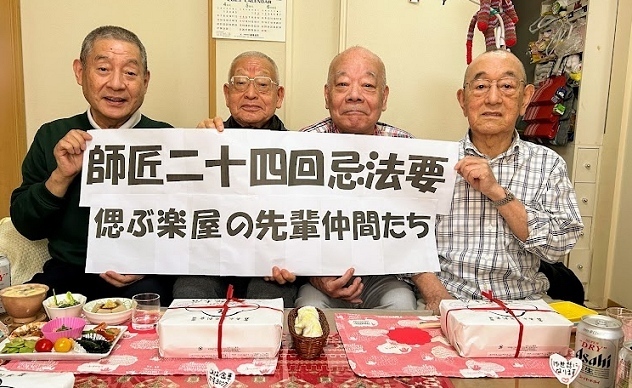 CALENDAR
師匠二十四回忌法要
偲ぶ楽屋の先輩仲間たち
DRY
Asahi